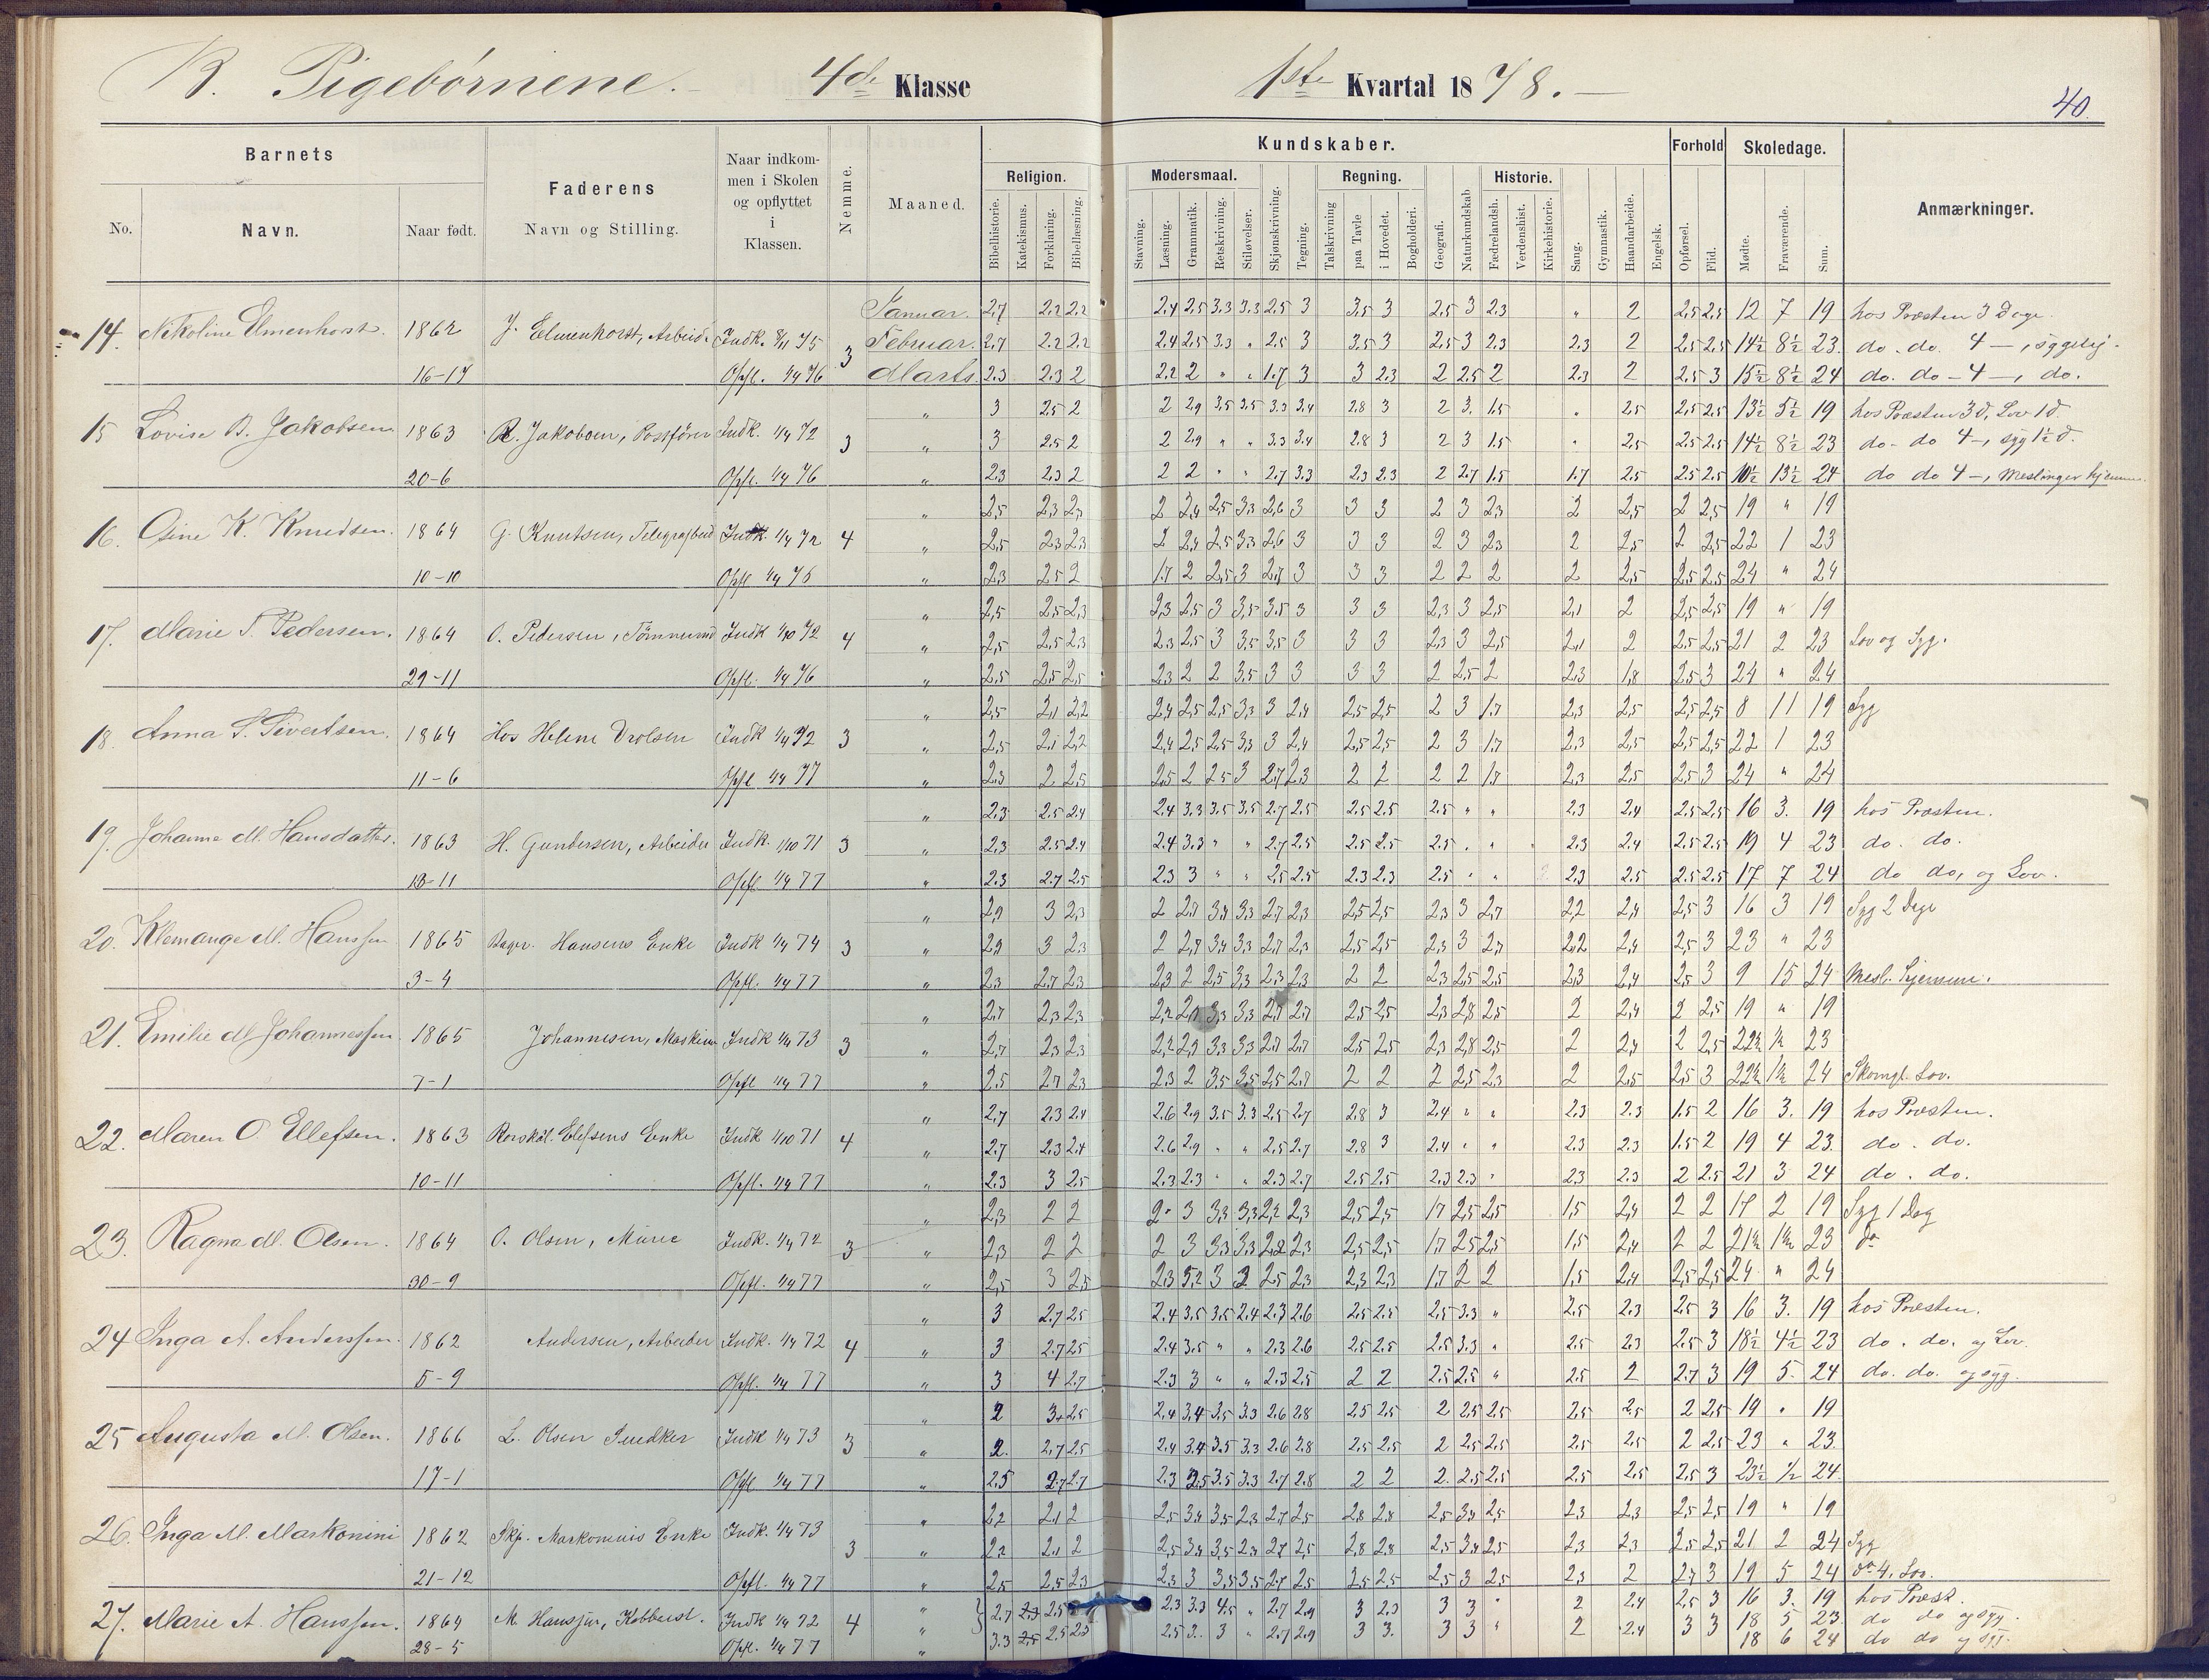 B. Pigebörnene. 4de Klasse
1ste Kvartal 1878.
40.
Barnets
No.
Navn.
Naar født.
Faderens
Navn og Stilling.
Naar indkom-
men i Skolen
og opflyttet
i
Klassen.
Nemme.
Maaned.
Kundskaber.
Religion.
Bibelhistorie.
Katekismus.
Forklaring.
Bibellæsning.
Modersmaal.
Stavning.
Læsning.
Grammatik.
Retskrivning.
Stiløvelser.
Skjønskrivning.
Tegning.
Regning.
Talskrivning
paa Tavle
i Hovedet.
Bogholderi.
Geografi.
Naturkundskab
Historie.
Fædrelandsh.
Verdenshist.
Kirkehistorie.
Sang.
Gymnastik.
Haandarbeide.
Engelsk.
Forhold
Opførsel.
Flid.
Skoledage.
Mødte.
Fraværende.
Sum.
Anmærkninger.
Januar. 2.7 2.2 2.2 2.4 2.5 3.3 3.3 2.5 3 3.5 3 2.5 3 2.3 " 2 2.5 2.5 12 7 19 hos Præsten 3 Dage.
14. Nikoline Elmenhorst. 1862 J. Elmenhorst, Arbeid. Indk. 8/11 75 3 Februar. 2.7 2.2 2.2 2.4 2.5 3.3 " 2.5 3 3.5 3 2.5 3 2.3 2.3 2 2.5 2.5 14½ 8½ 23. do. do. 4 —, sygelig.
16-17 Opfl. 1/4 76 Marts. 2.3 2.3 2 2.2 2 " " 1.7 3 3 2.3 2 2.5 2 2.3 2 2.5 3 15½ 8½ 24 do. do - 4 —, do.
" 3 2.5 2 2 2.9 3.5 3.5 3.3 3.4 2.8 3 2 3. 1.5 " 2.5 2.5 2.5 13½ 5½ 19 hos Præsten 3 d, Lov 1 d.
15 Lovise B. Jakobsen 1863 R. Jakobsen, Postfører Indk. 1/4 72 3 " 3 2.5 2 2 2.9 " " 3.3 3.4 2.8 3 2 3 1.5 " 2.5 2.5 2.5 14½ 8½ 23 do - do 4 —, syg 1½ d.
20-6 Opfl. 1/4 76 " 2.3 2.3 2 2 2 " " 2.7 3.3 2.3 2.3 2 2.7 1.5 1.7 2.5 2.5 2.5 10½ 13½ 24 do do 4 —, Meslinger hjemme.
" 2,5 2,3 2,3 2 2,4 2,5 3,3 2,6 3 3 3 2 3 2,3 2 2,5 2 2,5 19 " 19
16. Osine K. Knudsen. 1864 G. Knutsen, Telegrafbud Indk. 1/4 72 4 " 2,5 2,3 2,3 2 2,4 2,5 3,3 2,6 3 3 3 2 3 2,3 2 2,5 2 2,5 22 1 23
10-10 Opfl 1/4 76 " 2,3 2,5 2 1.7 2 2,5 3 2,7 3 3 3 2 2 2 2 2,5 2,5 2,5 24 " 24
" 2,5 2,5 2,3 2,3 2,5 3 3,5 3,5 3 3 3 2,3 3 2,5 2,1 2 2,5 2,5 19 " 19
17. Marie T. Pedersen. 1864 O. Pedersen, Tömmermd Indk 1/10 72 4 " 2,5 2,5 2,3 2,3 2,5 3 3,5 3,5 3 3 3 2,3 3 2,5 2,1 2 2,5 2,5 21 2 23 Lov og Syg.
29-11 Opfl. 1/4 76 " 2,5 2,5 2,5 2,3 2 2 3,5 3 3 3 3 2 2,5 2 2,3 1,8 2,5 3 24 " 24
" 2,5 2,1 2,2 2,4 2,5 2,5 3,3 3 2,4 2,5 2,5 2 3 1.7 2,3 2,5 2,5 2,5 8 11 19 Syg
18. Anna S. Sivertsen. 1864 Hos Helene Vrolsen Indk 1/4 72 3 " 2,5 2,1 2,2 2,4 2,5 2,5 3,3 3 2,4 2,5 2,5 2 3 1.7 2,3 2,5 2,5 2,5 22 1 23
11-6 Opfl 1/4 77 " 2,3 2 2,5 2,5 2 2,5 3 2,7 2,3 2 2 2 2 1.7 2,3 2,5 2,5 3 24 " 24
" 2.3 2.5 2.4 2.4 3.3 3.5 3.5 2.7 2.5 2.5 2.5 2.5 " " 2.3 2.4 2.5 2.5 16 3. 19 hos Præsten.
19. Johanne M. Hansdatter. 1863 H. Gundersen, Arbeider Indk. 1/10 71 3 " 2.3 2.5 2.4 2.4 3.3 " " 2.7 2.5 2.5 2.5 2.5 " " 2.3 2.4 2.5 2.5 19 4 23 do. do.
18-11 Opfl 1/4 77 " 2.3 2.7 2.5 2.3 3 " " 2.5 2.5 2.3 2.3 2.5 " " 2.3 2.5 2.5 2.5 17 7 24 do do, og Lov.
" 2,9 3 2,3 2 2,7 3,4 3,3 2,7 2,3 2,5 2,5 2,3 3 2,7 2,2 2,4 2,5 3 16 3 19 Syg 2 Dage
20. Klemange M. Hanssen 1865 Bager. Hansens Enke Indk 1/4 74 3 " 2,9 3 2,3 2 2,7 3,4 3,3 2,7 2,3 2,5 2,5 2,3 3 2,7 2,2 2,4 2,5 3 23 " 23
3-4 Opfl. 1/4 77 " 2,3 2,7 2,3 2,3 2 2,5 3,3 2,3 2,3 2 2 2,3 2,5 2,5 2,3 2,4 2,5 3 9 15 24 Mesl. hjemme.
" 2,7 2,3 2,3 2,2 2,9 3,3 3,3 2,7 2,7 2,5 2,5 2,3 2,8 2,5 2 2,4 2 2,5 19 " 19
21. Emilie M Johannessen 1865 Johannesen, Maskin Indk 1/4 73 3 " 2,7 2,3 2,3 2,2 2,9 3,3 3,3 2,7 2,7 2,5 2,5 2,3 2,8 2,5 2 2,4 2 2,5 22½ ½ 23
7-1 Opfl 1/4 77 " 2,5 2,7 2,3 2,3 2 3,5 3,5 2,5 2,7 2 2 2 2,5 2,3 2 2,5 2,5 3 22½ 1½ 24 Skomgl. Lov.
" 2.7 2.3 2.4 2.6 2.9 3.5 3.3 2.5 2.7 2.8 3 2.4 " " 2.3 2.3 1.5 2 16 3. 19 hos Præsten.
22. Maren O. Ellefsen. 1863 Elefsens Enke Indk 1/10 71 4 " 2.7 2.3 2.4 2.6 2.9 " " 2.5 2.7 2.8 3 2.4 " " 2.3 2.3 1.5 2 19 4 23. do. do.
10-11 Opfl. 1/4 77 " 2.3 3 2.5 2.3 2.3 " " 2.3 2.7 2.5 2.5 2.3 2.3 " 2.3 2.3 2 2.5 21 3 24 do. do.
" 2,3 2 2 2 3 3,3 3,3 2,2 2,3 2,5 2,5 1.7 2,5 2,5 1,5 2,4 2 2 17 2 19 Syg 1 Dag
23. Ragna M. Olsen. 1864 O. Olsen, Murer Indk. 1/4 72 3 " 2,3 2 2 2 3 3,3 3,3 2,2 2,3 2,5 2,5 1.7 2,5 2,5 1,5 2,4 2 2 21½ 1½ 23 do
30-9 Opfl. 1/4 77 " 2,5 3 2,5 2,3 3,2 3 2 2,5 2,3 2,3 2,3 1,7 2 2 1,5 2,4 2,5 2,5 24 " 24
" 3 2.7 2.5 2.4 3.5 3.5 2.4 2.3 2.6 2.5 2.5 2.5 3.3 " 2.5 2.3 2.5 3 16 3. 19 hos Præsten.
24 Inga A. Anderssen. 1862 Andersen, Arbeider Indk. 1/4 72 4 " 3 2.7 2.5 2.4 3.5 " " 2.3 2.6 2.5 2.5 2.5 3.3 " 2.5 2.3 2.5 3 18½ 4½ 23 do. do. og Lov.
5-9 Opfl. 1/4 77 " 3 4 2.7 2.3 3 " " 2.3 2.5 2 2 2.5 2.5 " 2.5 2 2.7 3 19 5. 24 do. do. og syg.
" 2 3 2.5 2.4 3.4 3.5 3.3 2.6 2.8 2.5 2.5 2 2.5 2.5 2.5 2.5 2 2.5 19 " 19
25 Augusta M. Olsen. 1866 L. Olsen Snedker Indk 1/4 73 3 " 2. 2.7 2.5 2.4 3.4 3.5 3.3 2.6 2.8 2.5 2.5 2 2.5 2.5 2.5 2.5 2 2.5 23 " 23.
17-1 Opfl 1/4 77 " 2.5 2.7 2.7 2.3 2.5 3.5 3.3 2.7 2.8 2 2 2. 2.5 2.5 2.5 2.5 2.5 3 23½ ½ 24.
" 2,2 2,1 2 2,5 3,4 3,5 2,3 2,7 2,5 2,8 2,8 2,5 3,4 2,5 2,3 2,3 2,5 2,5 19 " 19
26. Inga M. Markonini 1862 Skp. Markominis Enke Indk. 1/4 73 3 " 2,2 2,1 2 2,5 3,4 3,5 2,3 2,7 2,5 2,8 2,8 2,5 3,4 2,5 2,3 2,3 2,5 2,5 21 2 24 Syg
21-12 Opfl. 1/4 77 " 2,5 2,5 2,3 2,3 3 3,5 3,5 2,7 2,5 2,5 2,5 2,5 3 2,5 2,3 2 2,7 3 19 5 24 do 4, Lov.
" 2.7 2.3 2.5 2.3 3.3 4.5 " 2.7 2.9 3 2.3 3 3 " 2 2.4 2.5 3 16 3. 19 hos Præst.
27. Marie A. Hanssen. 1864 M. Hanssen, Kobberst. Indk 1/4 72 4 " 3.3 2.5 2.5 2.3 2.5 3. 3 " 2.7 2.9 3 3. 3 3 " 2 2.4 3 3 18 5 23 do do og syg.
28-5 Opfl. 1/4 77 " 18 6 24 do do og syg.